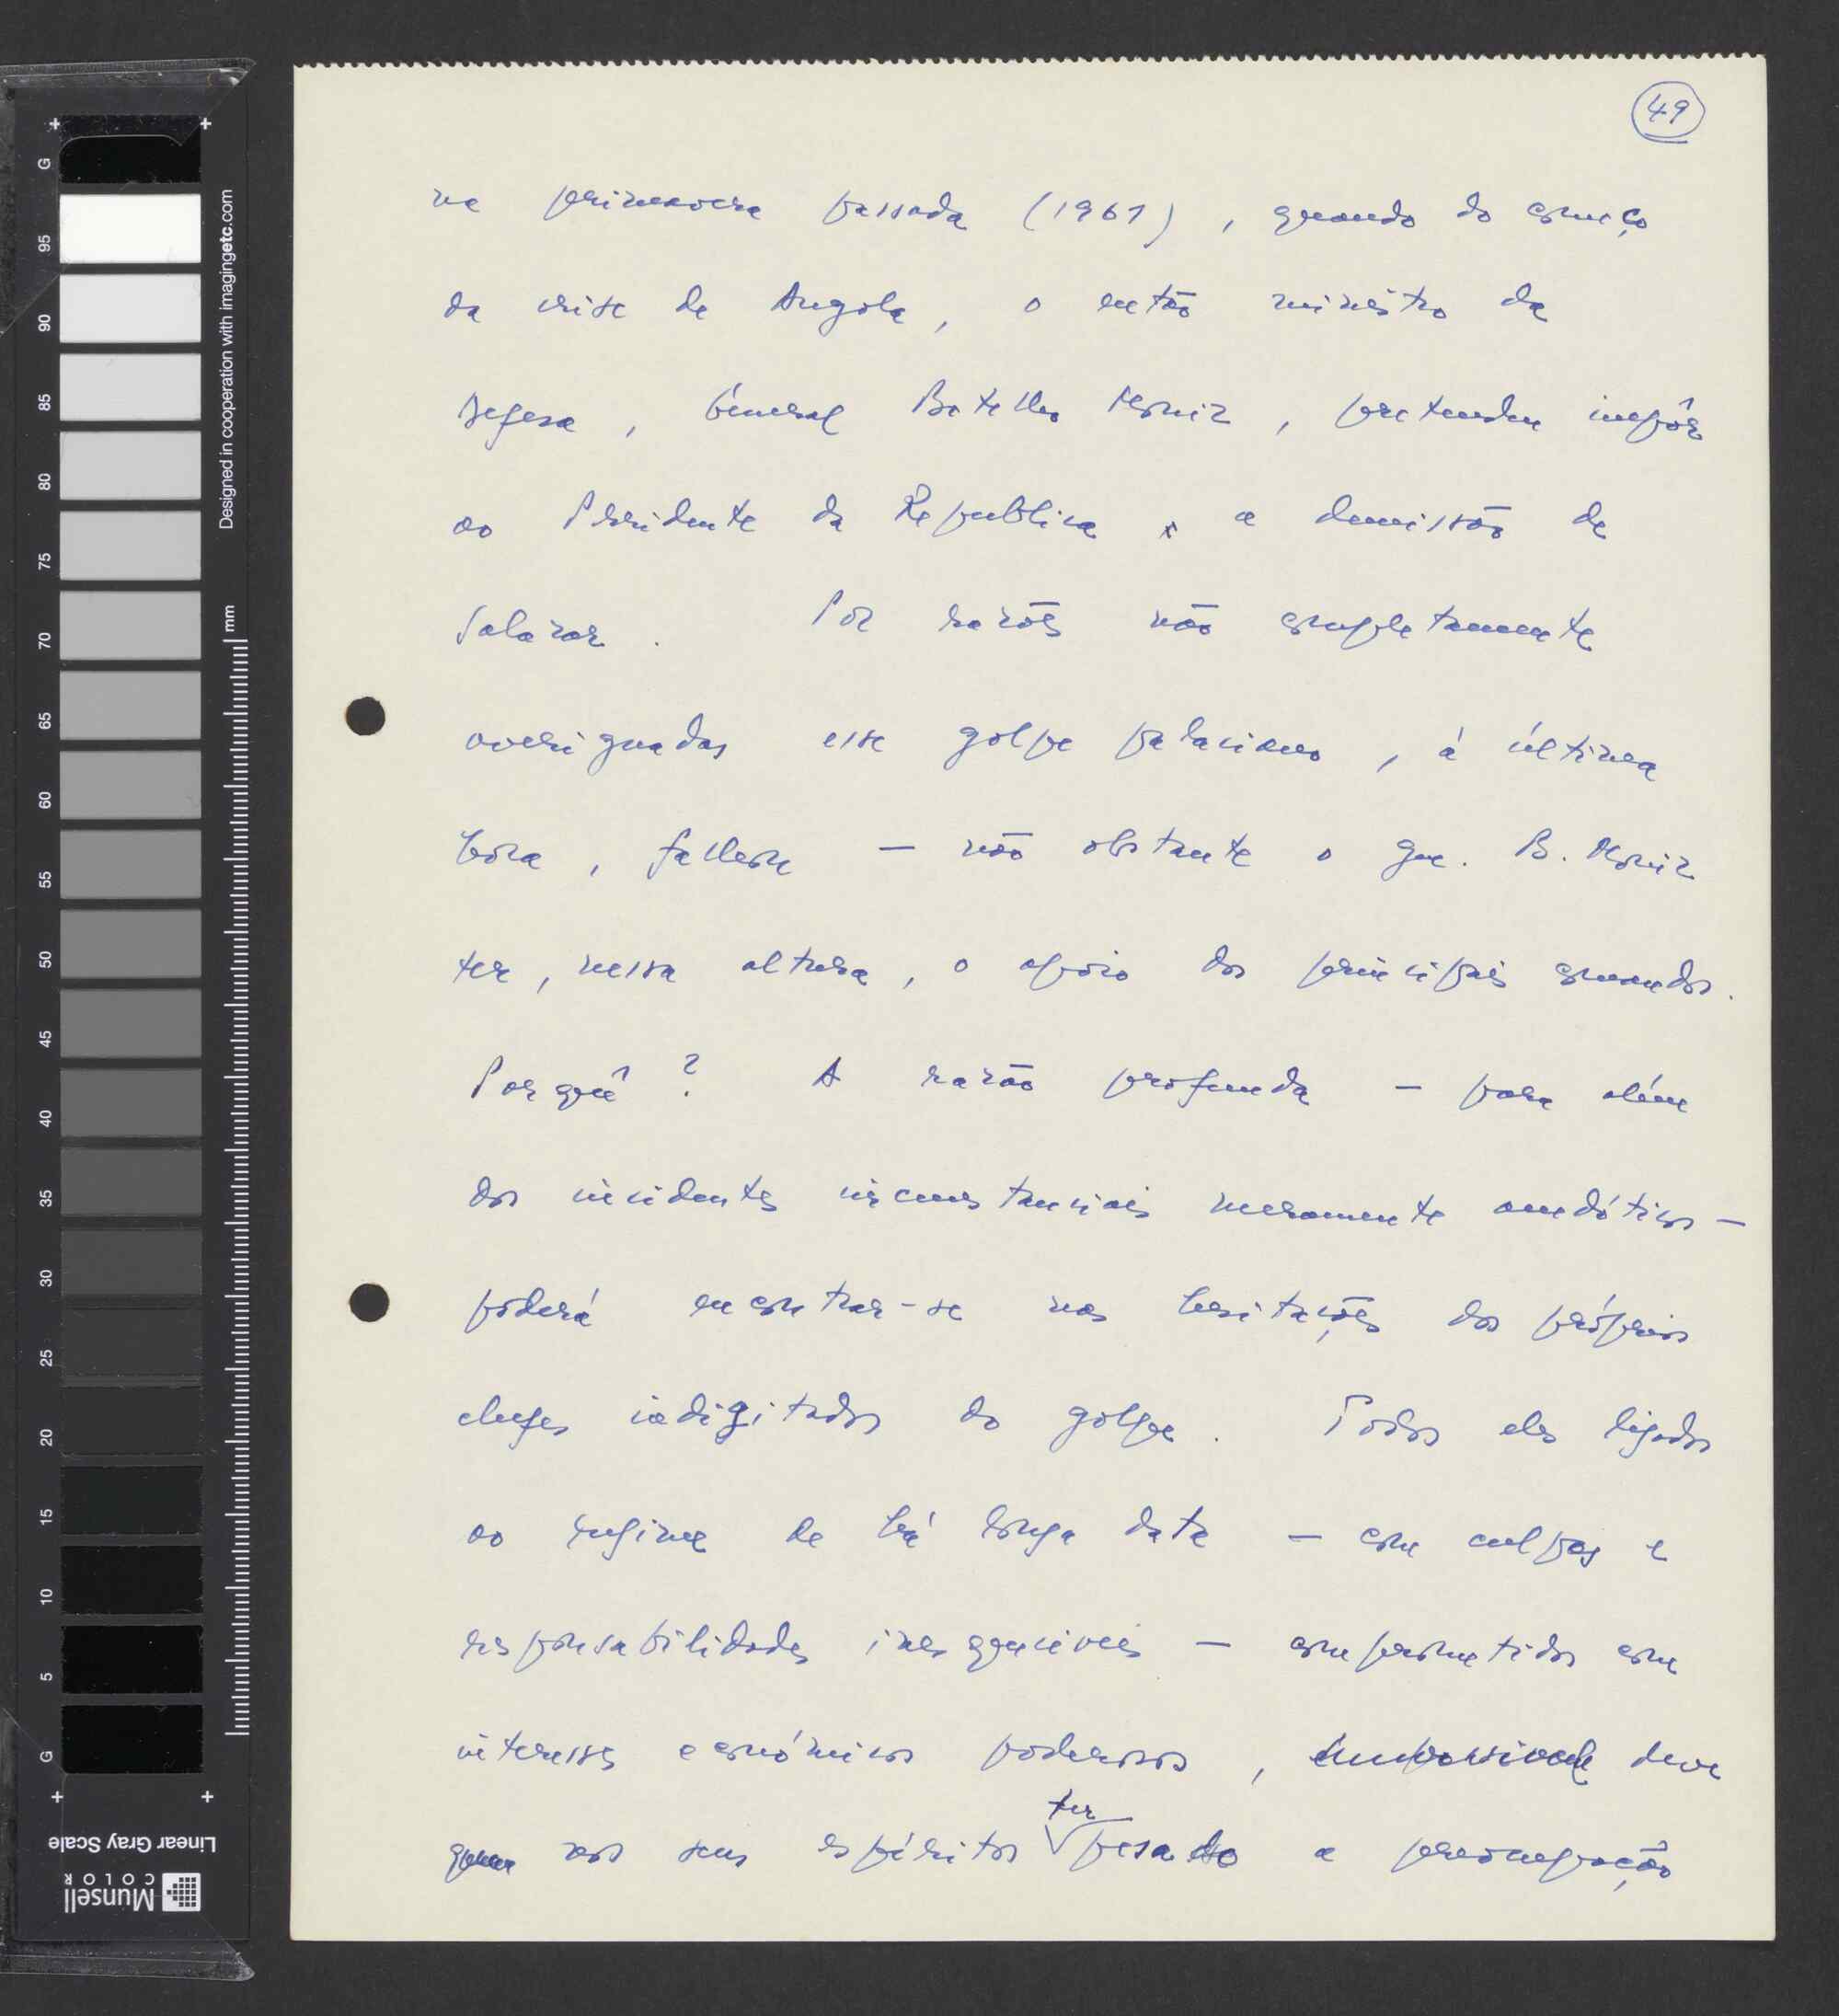 49
na primavera passada (1961), quando do começo
da crise de Angola, o então ministro da
Defesa, General Botelho Moniz, pretendeu impôr
ao Presidente da Republica a demissão de
Salazar. Por razões não completamente
averiguadas esse golpe palaciano, à última
hora, falhou — não obstante o gen. B. Moniz
ter, nessa altura, o apoio dos principais comandos.
Porquê? A razão profunda — para além
dos incidentes circunstanciais meramente anedóticos —
poderá encontrar-se nas hesitações dos próprios
chefes indigitados do golpe. Todos eles ligados
ao regime de há longa data — com culpas e
responsabilidades inesquecíveis — comprometidos com
interesses económicos poderosos, deve
nos seus espíritos ter pesado a preocupação
G 95 90 85 80 75 70 65 60 55 50 45 40 35 30 25 20 15 10 5 G
Designed in cooperation with imagingetc.com
mm
Linear Gray Scale
Munsell
COLOR